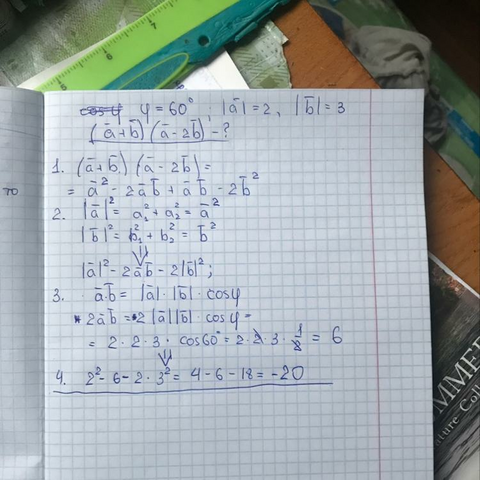 cos φ φ = 60°, |a̅| = 2, |b̅| = 3
(a̅+b̅)(a̅-2b̅) - ?
1. (a̅+b̅)(a̅-2b̅) =
= a̅² - 2a̅b̅ + a̅b̅ - 2b̅²
70
2. |a̅|² = a₁² + a₂² = a̅²
|b̅|² = b₁² + b₂² = b̅²
⇓
|a̅|² - 2a̅b̅ - 2|b̅|²;
3. a̅·b̅ = |a̅|·|b̅|·cosφ
* 2a̅b̅ = 2|a̅||b̅|·cosφ =
= 2·2·3·cos60° = 2·2·3·1/2 = 6
⇓
4. 2² - 6 - 2·3² = 4 - 6 - 18 = -20
MMER
ature Collec